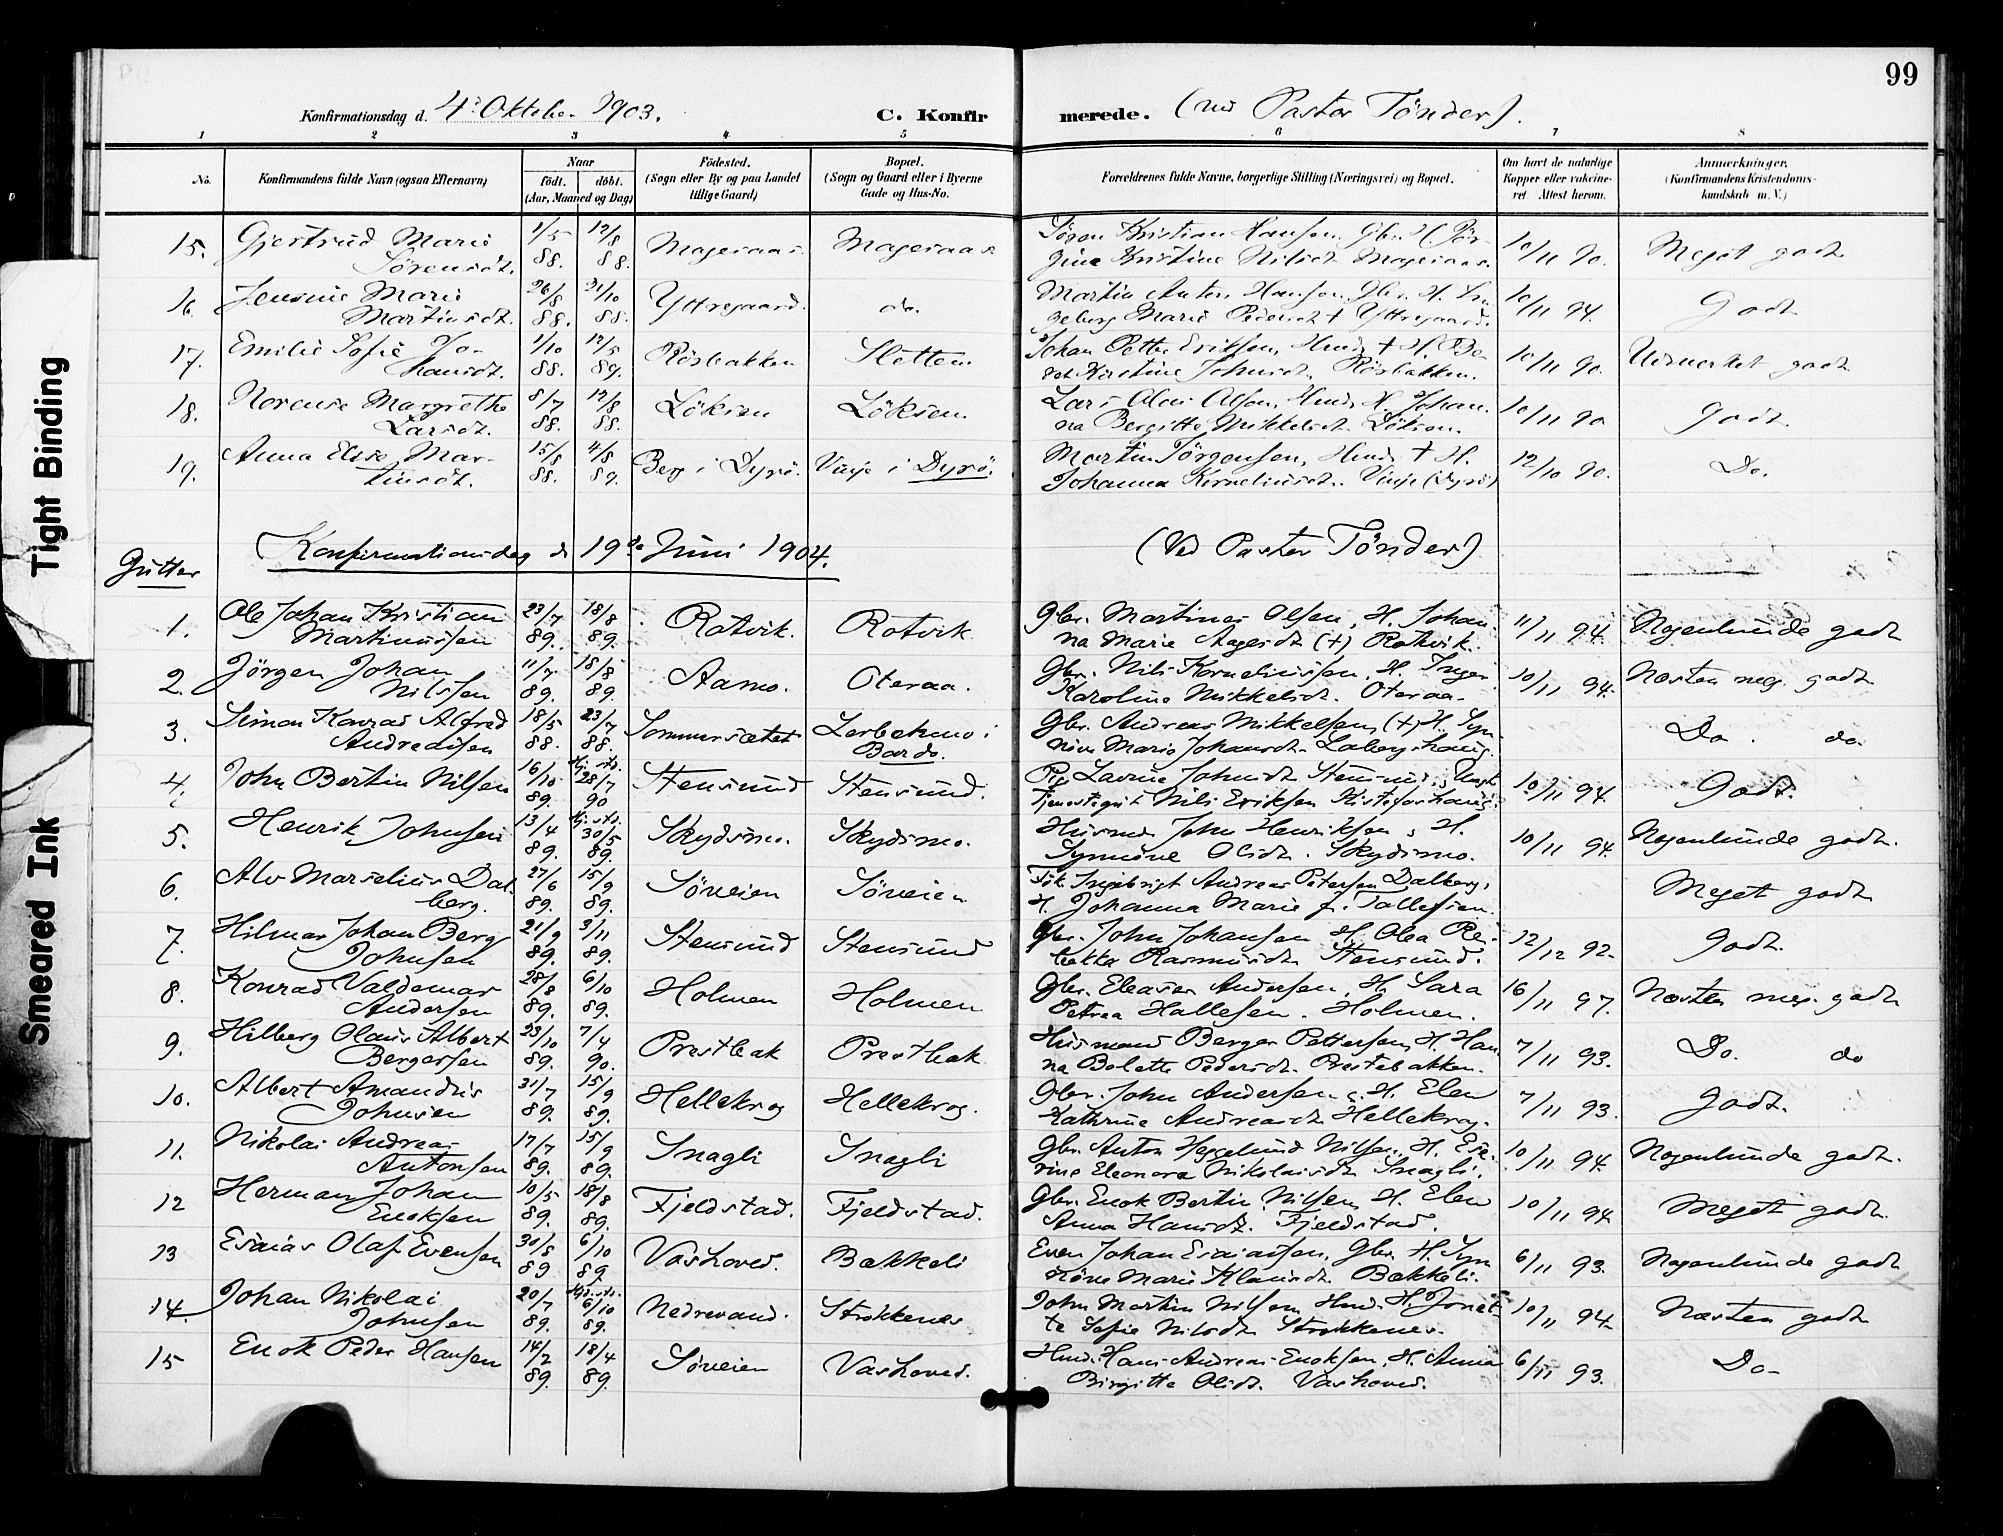 99
Konfirmationsdag d. 4de Oktober 1903.
C. Konfirmerede. (ved Pastor Tönder).
1 2 3 4 5 6 7 8
No.
Konfirmandens fulde Navn (ogsaa Efternavn)
Naar
födt. döbt.
(Aar, Maaned og Dag)
Födested.
(Sogn eller By og paa Landet
tillige Gaard)
Bopæl.
(Sogn og Gaard eller i Byerne
Gade og Hus-No.
Forældrenes fulde Navne, borgerlige Stilling (Næringsvei) og Bopæl.
Om havt de naturlige
Kopper eller vakcine-
ret. Attest herom.
Anmærkninger.
(Konfirmandens Kristendoms-
kundskab m. V.)
15. Gjertrud Marie Sörensdt. 1/5 88. 12/8 88. Mageraas. Mageraas Sören Kristian Hansen, Gbr. H. Jör-
gine Kristine Nilsdt. Mageraas. 10/11 90. Meget godt
16. Jensine Marie Martinsdt. 26/8 88. 21/10 88. Yttregaard. do. Martin Anton Hansen, Gbr. H. In-
geborg Marie Pedersdt + Yttregaard. 10/11 94. Godt
17. Emilie Sofie Jo-
hansdt. 1/10 88. 12/5 89. Rösbakken Sletten. Johan Petter Eriksen, Hmd. + H. Be-
ret Kirstine Johnsdt. Rösbakken. 10/11 90. Udmerket godt
18. Norense Margrethe Larsdt. 8/7 88. 12/8 88. Löksen Löksen. Lars Olai Olsen, Hmd. H. Johan-
na Bergitte Mikkelsdt. Löksen. 10/11 90 Godt.
19. Anna Elise Mar-
tinsdt. 15/8 88. 4/8 89. Berg i Dyrö. Vinje i Dyrö. Martin Jörgensen, Hmd. + H.
Johanna Korneliusdt. Vinje (Dyrö) 12/10 90. Do.
Konfirmationsdag d 19de Juni 1904.
(Ved Pastor Tönder)
Gutter
1. Ole Johan Kristian Martinussen 23/7 89. 18/8 89. Rotvik. Rotvik Gbr. Martines Olsen, H. Johan-
na Marie Aagesdt (+) Rotvik. 11/11 94. Nogenlunde godt
2. Jörgen Johan Nilssen 11/7 89. 18/8 89. Aamo. Oteraa. Gbr. Nils Korneliussen, H. Inger
Karoline Mikkelsdt. Oteraa. 10/11 94. Næsten meg. godt
3. Simon Konrad Alfred Andreassen 18/5 88. 23/7 88. Sommersætet Lerbekmo i
Bardo. Gbr. Andreas Mikkelsen, (+) H. Syn-
növe Marie Johansdt. Labergshaug. Do. do.
4. John Bertin Nilsen 16/10 89. Hj. db. 28/7 90 Stensund Stensund. Pig Lavine Johnsdt Stensund, Ungk.
Tjenestegut Nils Eriksen Kistefoshaug. 10/11 94. Godt.
5. Henrik Johnsen 13/4 89. Hj. db. 30/5 89. Skydsmo. Skydsmo. Husmd John Henriksen, H.
Synnöve Olsdt. Skydsmo. 10/11 94. Nogenlunde godt.
6. Alv Marselius Dal-
berg. 27/6 89. 15/9 89. Söveien Söveien Ingebrigt Andreas Petersen Dalberg,
H. Johanna Marie f. Tollefsen. Meget godt
7. Hilmar Johan Berg Johnsen 21/9 89. 3/11 89. Stensund Stensund Gbr. John Johansen H. Olea Re-
bekka Rasmusdt Stensund. 12/12 92. Godt.
8. Konrad Valdemar Andersen 28/8 89. 6/10 89. Holmen Holmen Gbr. Eleaser Andersen, H. Sara
Petrea Hallesen. Holmen. 16/11 97. Næsten meg. godt
9. Hilberg Olaus Albert Bergersen 23/10 89. 7/4 90. Prestbak Prestbak Husmand Berger Pettersen, H. Han-
na Bolette Pedersdt. Prestebakken. 7/11 93. Do. do
10. Albert Amandus Johnsen 31/7 89. 15/9 89. Hellekrog Hellekrog. Gbr. John Andersen, H. Elen
Kathrine Andreasdt Hellekrog. 7/11 93. Godt.
11. Nikolai Andreas Antonsen 17/7 89. 15/9 89. Inagli Inagli Gbr. Anton Heggelund Nilsen, H. Ese-
rine Eleonora Nikolaisdt Inagli. 10/11 94. Nogenlunde godt.
12 Herman Johan Enoksen 10/5 89. 18/8 89. Fjeldstad. Fjeldstad. Gbr. Enok Bertin Nilsen, H. Elen
Anna Hansdt. Fjeldstad. 10/11 94 Meget godt.
13 Esaias Olaf Evensen 30/8 89 6/10 89 Vashoved. Bakkeli Even Johan Esaiassen, Gbr. H. Syn-
növe Marie Klausdt Bakkeli. 6/11 93. Nogenlunde godt
14. Johan Nikolai Johnsen 20/7 89. Hj. db. 6/10 89. Nedrevand. Strokkenes John Martin Nilsen Hmd. H. Jonet-
te Sofie Nilsdt Strokkenes. 10/11 94. Næsten godt
15 Enok Peder Hansen 14/2 89. 18/4 89. Söveien Vashoved. Hmd. Hans Andreas Enoksen, H. Anna
Birgitte Olsdt. Vashoved. 6/11 93. Do.
Tight Binding
Smeared Ink